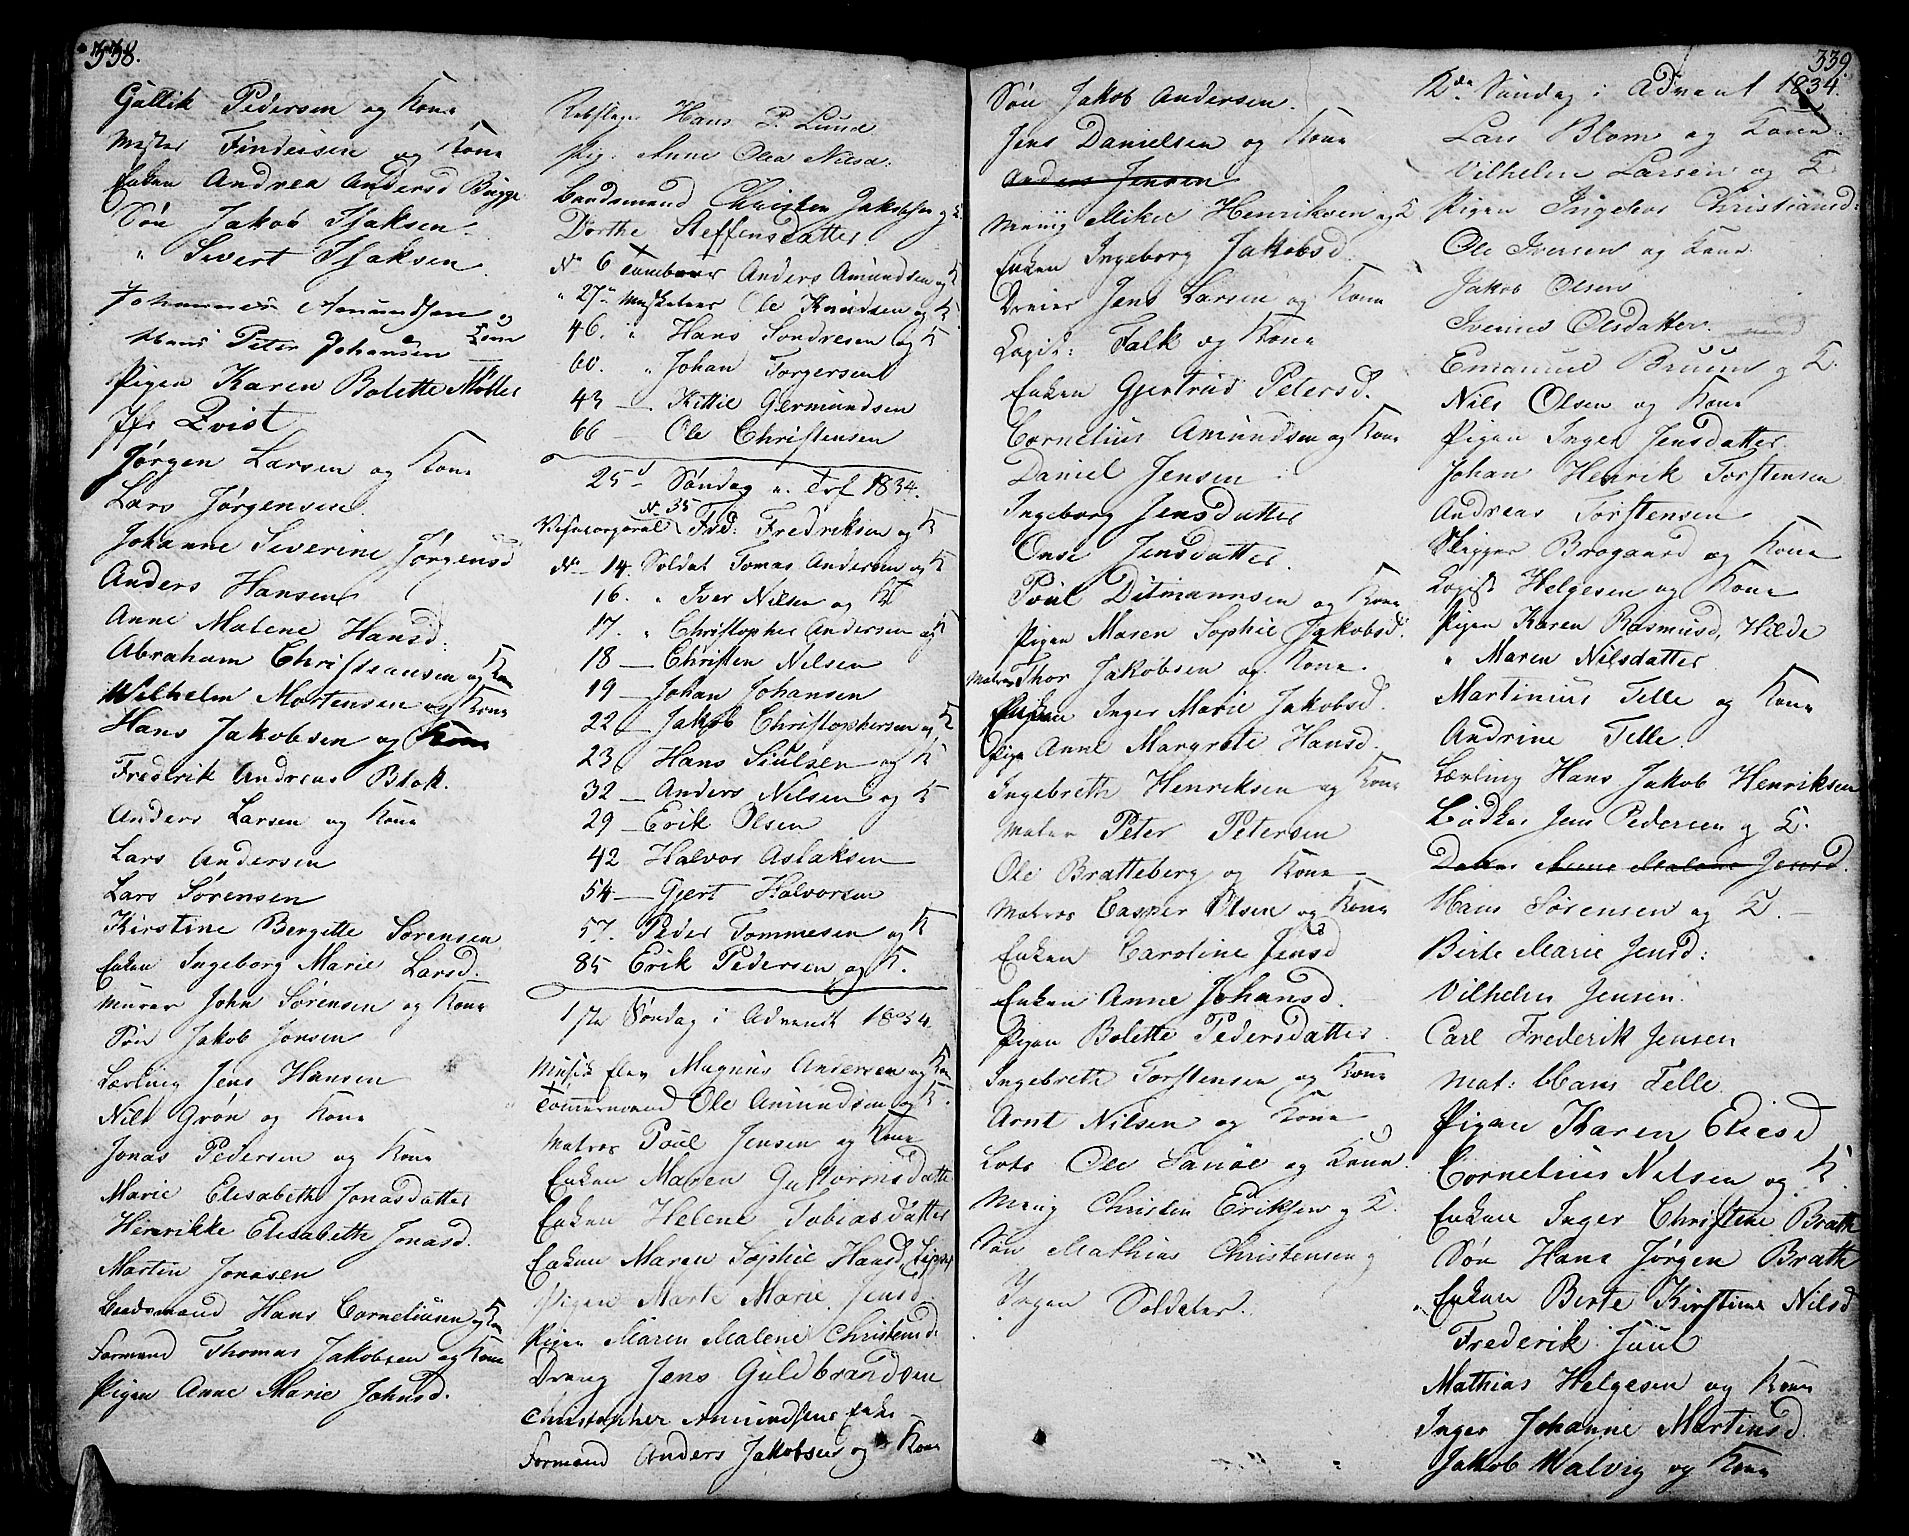 338.
Gullik Pedersen og Kone
Mester Findeisen og Kone
Enken Andrea Andersd Bugge
Søn Jakob Isaksen
" Sivert Isaksen
Johannes Amundsen og Kone
Hans Peter Johansen
Pigen Karen Bolette Møller
Jfr Qvist
Jørgen Larsen og Kone
Lars Jørgensen
Johanne Severine Jørgensd
Anders Hansen
Anne Malene Hansd:
Abraham Christiansen og Kone
Wilhelm Mortensen og Kone
Hans Jakobsen og Kone
Fredrik Andreas Blok.
Anders Larsen og Kone
Lars Andersen
Lars Sørensen
Kirstine Bergitte Sørensen
Enken Ingeborg Marie Larsd.
Murer John Sørensen og Kone
Søn Jakob Jonsen
Lærling Jens Hansen
Nils Grøn og Kone
Jonas Pedersen og Kone
Marie Elisabeth Jonasdatter
Henrikke Elisabeth Jonasd.
Martin Jonasen
Baadsmand Hans Corneliusen og Kone
Formand Thomas Jakobsen og Kone
Pigen Anne Marie Johnsd.
Rebslager Hans P. Lund
Pig. Anne Olea Nilsd:
Baadsmand Christen Jakobsen og K
Dorthe Steffensdatter
No 6 Tambour Anders Amundsen og K
" 27 " Musketeer Ole Knudsen og K
46. " Hans Sondresen og K
60. " Johan Torgersen
43 — Kittil Germundsen
66 — Ole Christensen
25d Søndag e. Trf 1834.
No 35
Visecorporal Fred: Fredriksen og K
No 14. Soldat Tomas Andersen og K
16. " Iver Nilsen og K
17. " Christopher Andersen og K
18 — Christen Nilsen
19 — Johan Johansen
22 — Jakob Christophersen og K
23 — Hans Siulsen og K
32 — Anders Nilsen og K
29 — Erik Olsen
42 Halvor Aslaksen
54 — Gjert Halvorsen
57. Peder Tommesen og K
85 Erik Pedersen og K.
1ste Søndag i Advendt 1834.
Musik Elev Magnus Andersen og Kone
Tømmermand Ole Amundsen og K.
Matros Poul Jensen og Kone
Enken Maren Guttormsdatter
Enken Helene Tobiasdatter
Enken Maren Sophie Hansd,
Pigen Marte Marie Jensd.
Pigen Maren Malene Christensd:
Dreng Jens Guldbrandsen
Christopher Amundsens Enke
Formand Anders Jakobsen og Kone
Søn Jakob Andersen.
Jens Danielsen og Kone
Anders Jensen
Menig Mikel Henriksen og K
Enken Ingeborg Jakobsd.
Dreier Jens Larsen og Kone
Capit: Falk og Kone
Enken Gjertrud Petersd.
Cornelius Amundsen og Kone
Daniel Jensen
Ingeborg Jensdatter
Onse Jensdatter.
Poul Ditmannsen og Kone
Pigen Maren Sophie Jakobsd.
Matros Thor Jakobsen og Kone.
Enken Inger Marie Jakobsd.
Pige Anne Margrete Hansd.
Ingebreth Henriksen og Kone
Matros Peter Petersen
Ole Bratteberg og Kone
Matros Casper Olsen og Kone
Enken Caroline Jensd
Enken Anne Johansd.
Pigen Bolette Pedersdatter
Ingebreth Torstensen og Kone
Arnt Nilsen og Kone
Lods Ole Sanøe og Kone.
Menig Christen Eriksen og K.
Søn Mathias Christensen
Ingen Soldater.
339.
2den Søndag i Advent 1834.
Lars Blom og Kone.
Vilhelm Larsen og K
Pigen Ingebor Christiansd:
Ole Iversen og Kone
Jakob Olsen
Iverine Olsdatter.
Emanuel Bruun og K.
Nils Olsen og Kone
Pigen Inger Jensdatter
Johan Henrik Torstensen
Andreas Torstensen
Skipper Brogaard og Kone
Copist Helgesen og Kone
Pigen Karen Rasmusd, Hilde
" Maren Nilsdatter
Martinius Telle og Kone
Andrine Telle.
Lærling Hans Jakob Henriksen
Bødker Jens Pedersen og K.
Datter Anne Malene Jensd.
Hans Sørensen og K.
Birte Marie Jensd:
Vilhelm Jensen.
Carl Frederik Jensen
Mat: Hans Telle.
Pigen Karen Eliesd
Cornelius Nilsen og K.
Enken Inger Christine Brath
Søn Hans Jørgen Brath
Enken Birte Kirstine Nilsd
Frederik Juul
Mathias Helgesen og Kone
Inger Johanne Martinsd.
Jakob Malvig og Kone